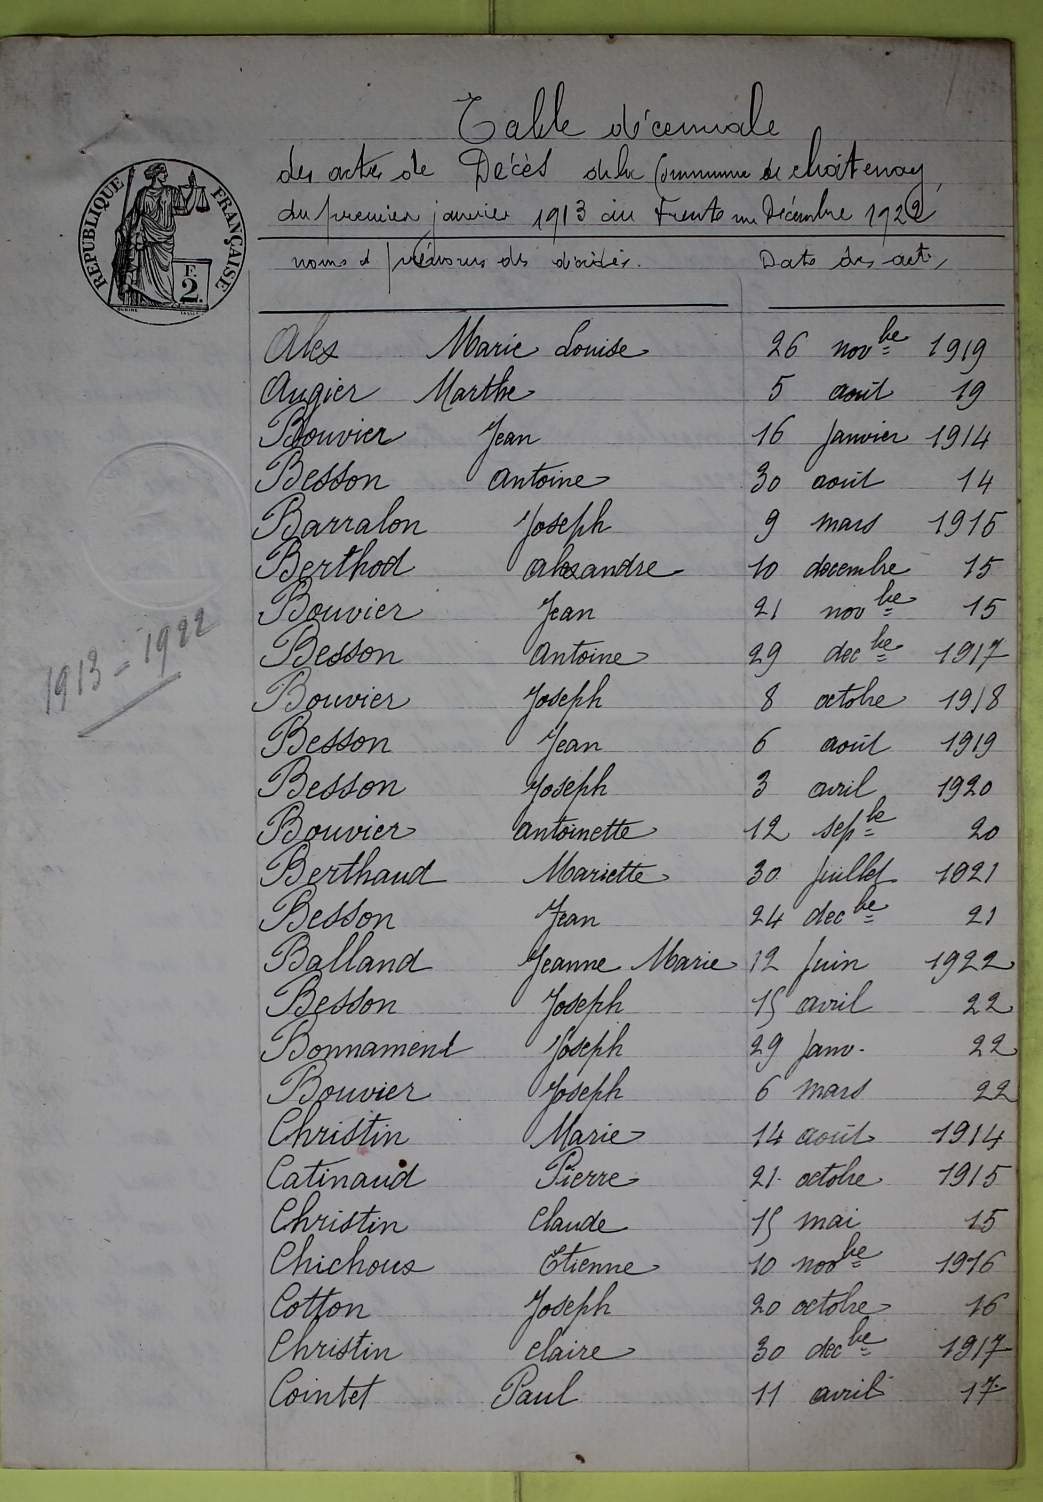 Table décennale
des actes de Décès de la Commune de Chatenay,
du premier janvier 1913 au trente un Décembre 1922
RÉPUBLIQUE FRANÇAISE
F.
2.
noms et prénoms des décédés. Date des actes
Alex Marie Louise 26 novbe 1919
Augier Marthe 5 août 19
Bouvier Jean 16 Janvier 1914
Besson Antoine 30 août 14
Barralon Joseph 9 mars 1915
Berthod alexandre 10 decembre 15
Bouvier Jean 21 novbe 15
Besson Antoine 29 decbe 1917
Bouvier Joseph 8 octobre 1918
Besson Jean 6 août 1919
Besson Joseph 3 avril 1920
Bouvier Antoinette 12 sepbe 20
Berthaud Mariette 30 Juillet 1921
Besson Jean 24 decbe 21
Balland Jeanne Marie 12 Juin 1922
Besson Joseph 15 avril 22
Bonnament Joseph 29 Janv. 22
Bouvier Joseph 6 mars 22
Christin Marie 14 août 1914
Catinaud Pierre 21 octobre 1915
Christin Claude 15 mai 15
Chichoux Etienne 10 novbe 1916
Cotton Joseph 20 octobre 16
Christin Claire 30 decbe 1917
Cointet Paul 11 avril 17
1913 = 1922